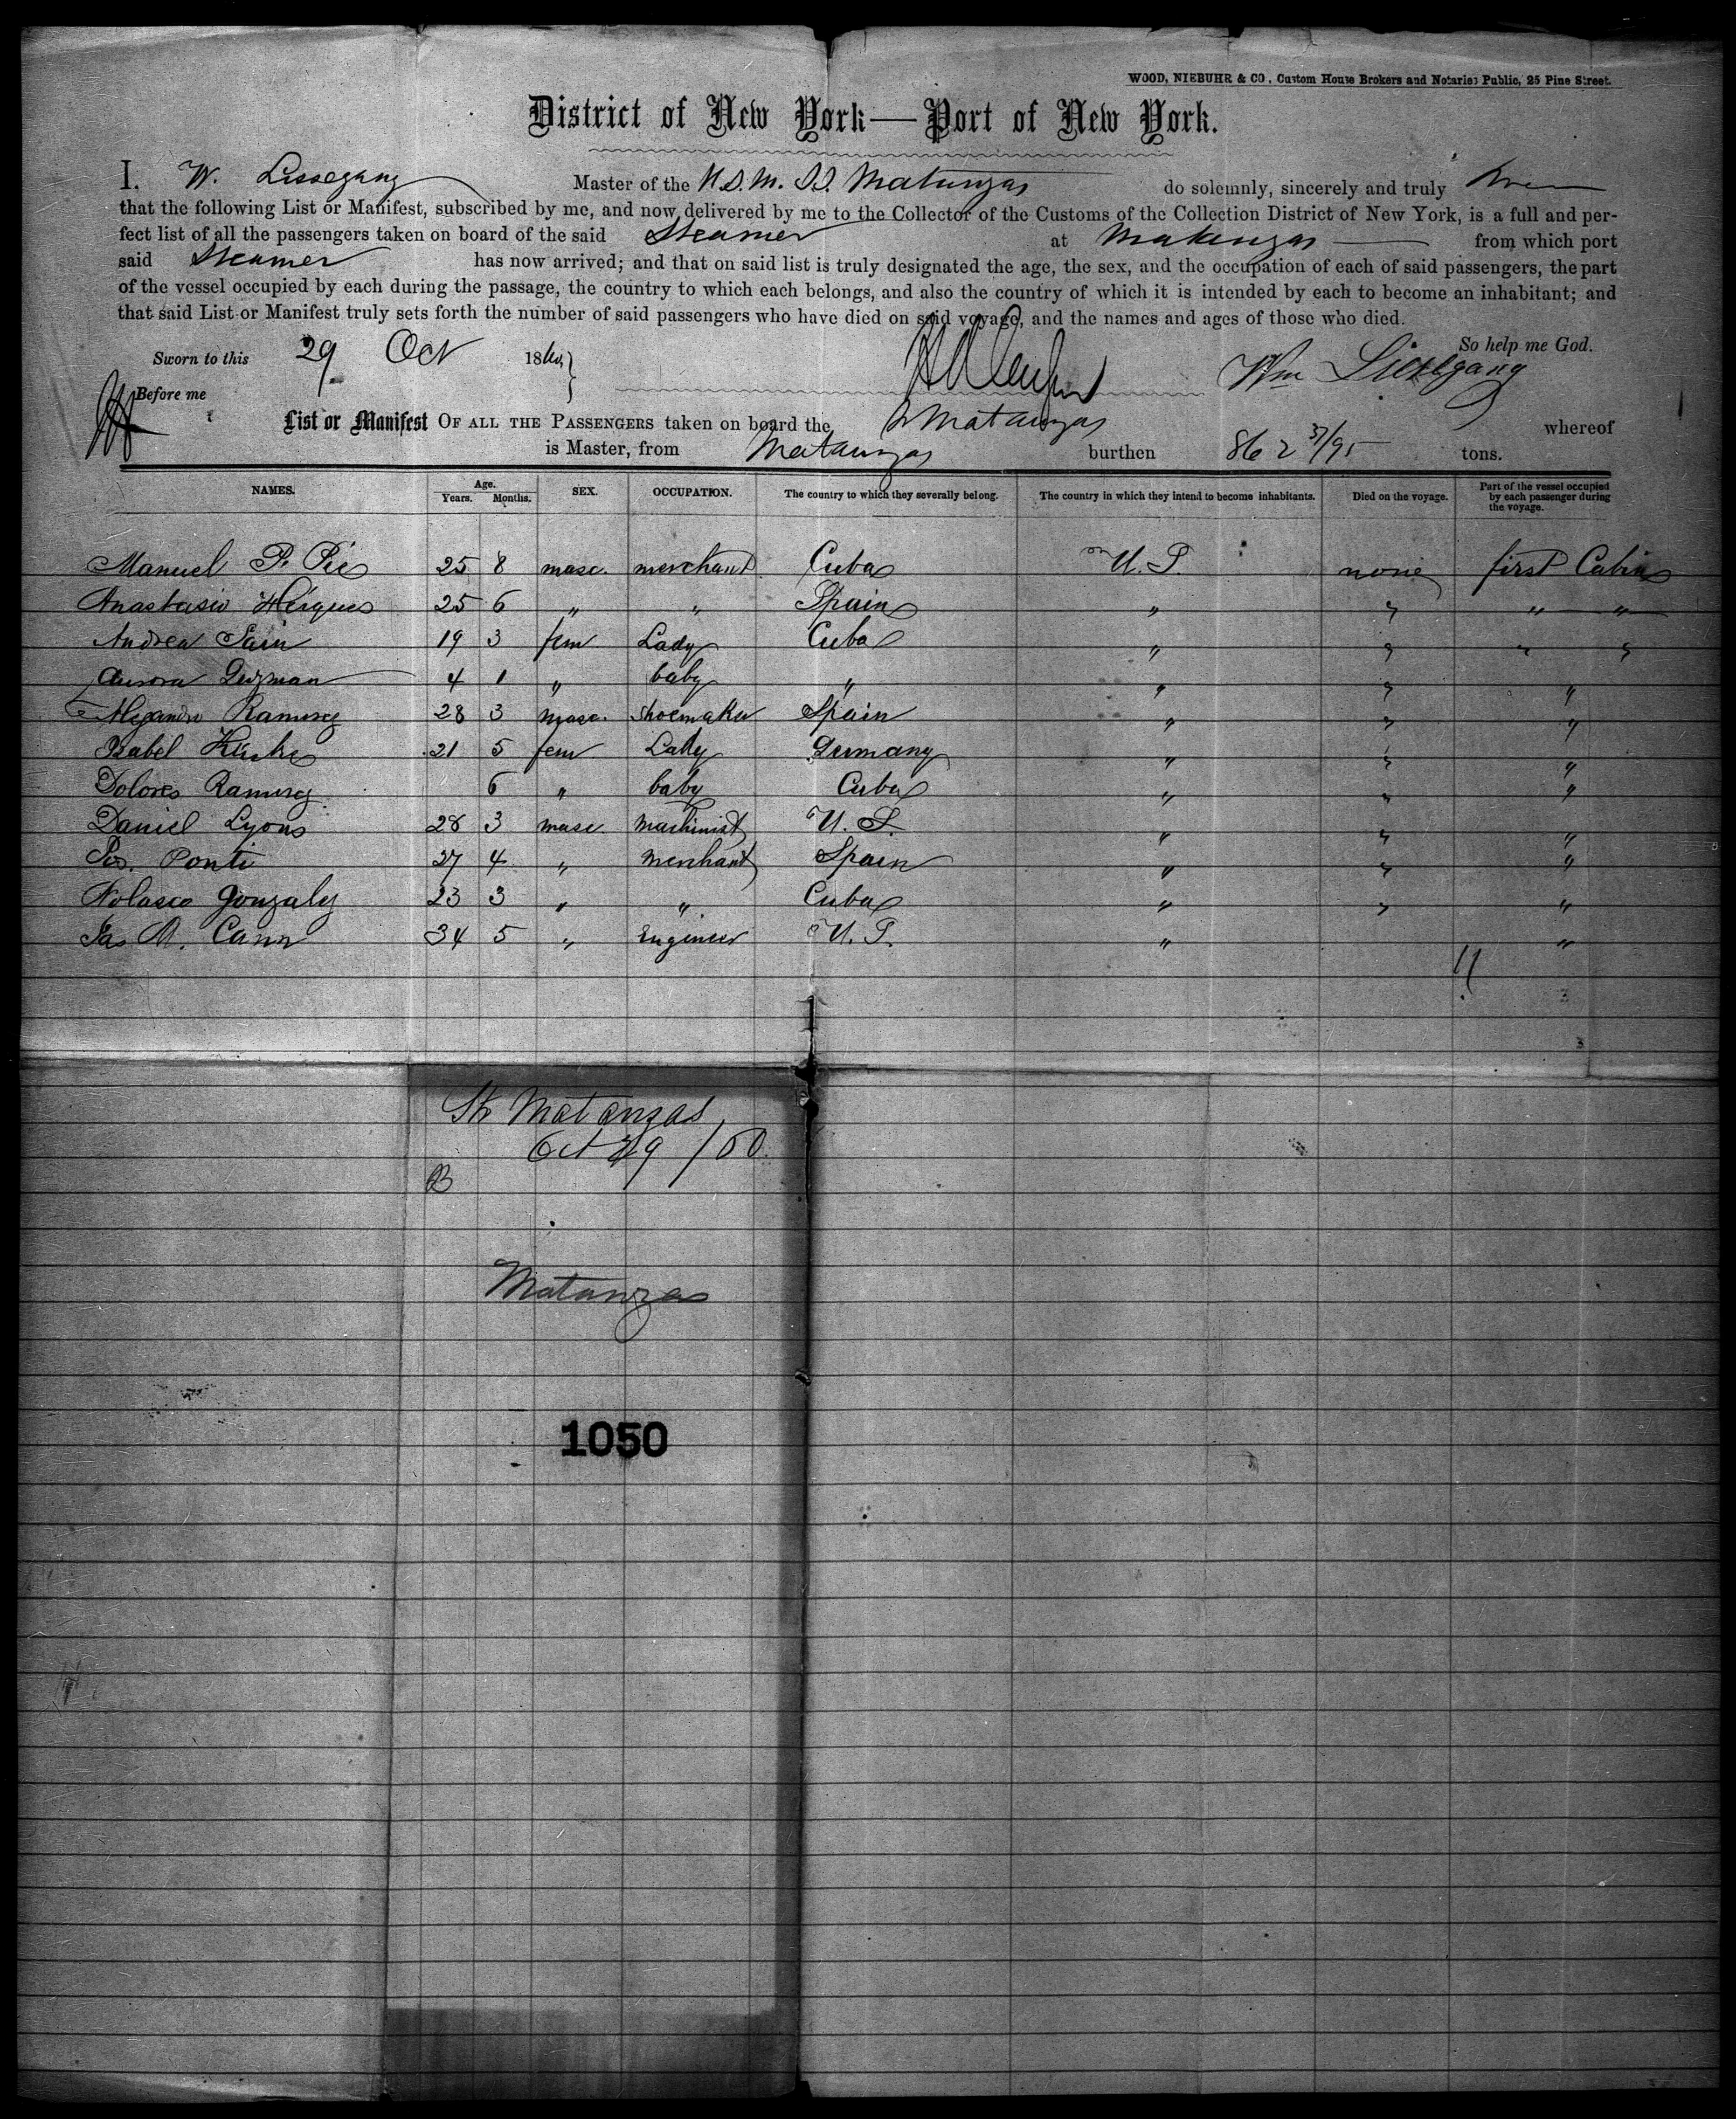 WOOD, NIEBUHR & CO., Custom House Brokers and Notaries Public, 25 Pine Street.
District of New York—Port of New York.
I. W. Liesegang Master of the U.S.M. S.S. Matanzas do solemnly, sincerely and truly
that the following List or Manifest, subscribed by me, and now delivered by me to the Collector of the Customs of the Collection District of New York, is a full and per-
fect list of all the passengers taken on board of the said Steamer at Matanzas from which port
said Steamer has now arrived; and that on said list is truly designated the age, the sex, and the occupation of each of said passengers, the part
of the vessel occupied by each during the passage, the country to which each belongs, and also the country of which it is intended by each to become an inhabitant; and
that said List or Manifest truly sets forth the number of said passengers who have died on said voyage, and the names and ages of those who died.
So help me God.
Sworn to this 29 Oct 186
Wm Liesegang
Before me
List or Manifest OF ALL THE PASSENGERS taken on board the Matanzas whereof
is Master, from Matanzas burthen 862 37/95 tons.
NAMES. Age. Years. Months. SEX. OCCUPATION. The country to which they severally belong. The country in which they intend to become inhabitants. Died on the voyage. Part of the vessel occupied by each passenger during the voyage.
Manuel P. Pie 25 8 masc. merchant Cuba U.S. none first Cabin
Anastasio 25 6 " " Spain " " " "
Andrea 19 3 fem Lady Cuba " " " "
Aurora Guzman 4 1 " baby " " " "
Alejandro Ramirez 28 3 masc. Shoemaker Spain " " "
Isabel 21 5 fem Lady Germany " " "
Dolores Ramirez 6 " baby Cuba " " "
Daniel Lyons 28 3 masc. machinist U.S. " " "
Ponti 27 4 " merchant Spain " " "
Nolasco Gonzalez 23 3 " " Cuba " " "
Jas A. Cann 34 5 " Engineer U.S. " "
11
Str Matanzas
Oct 29 / 60
B
Matanzas
1050